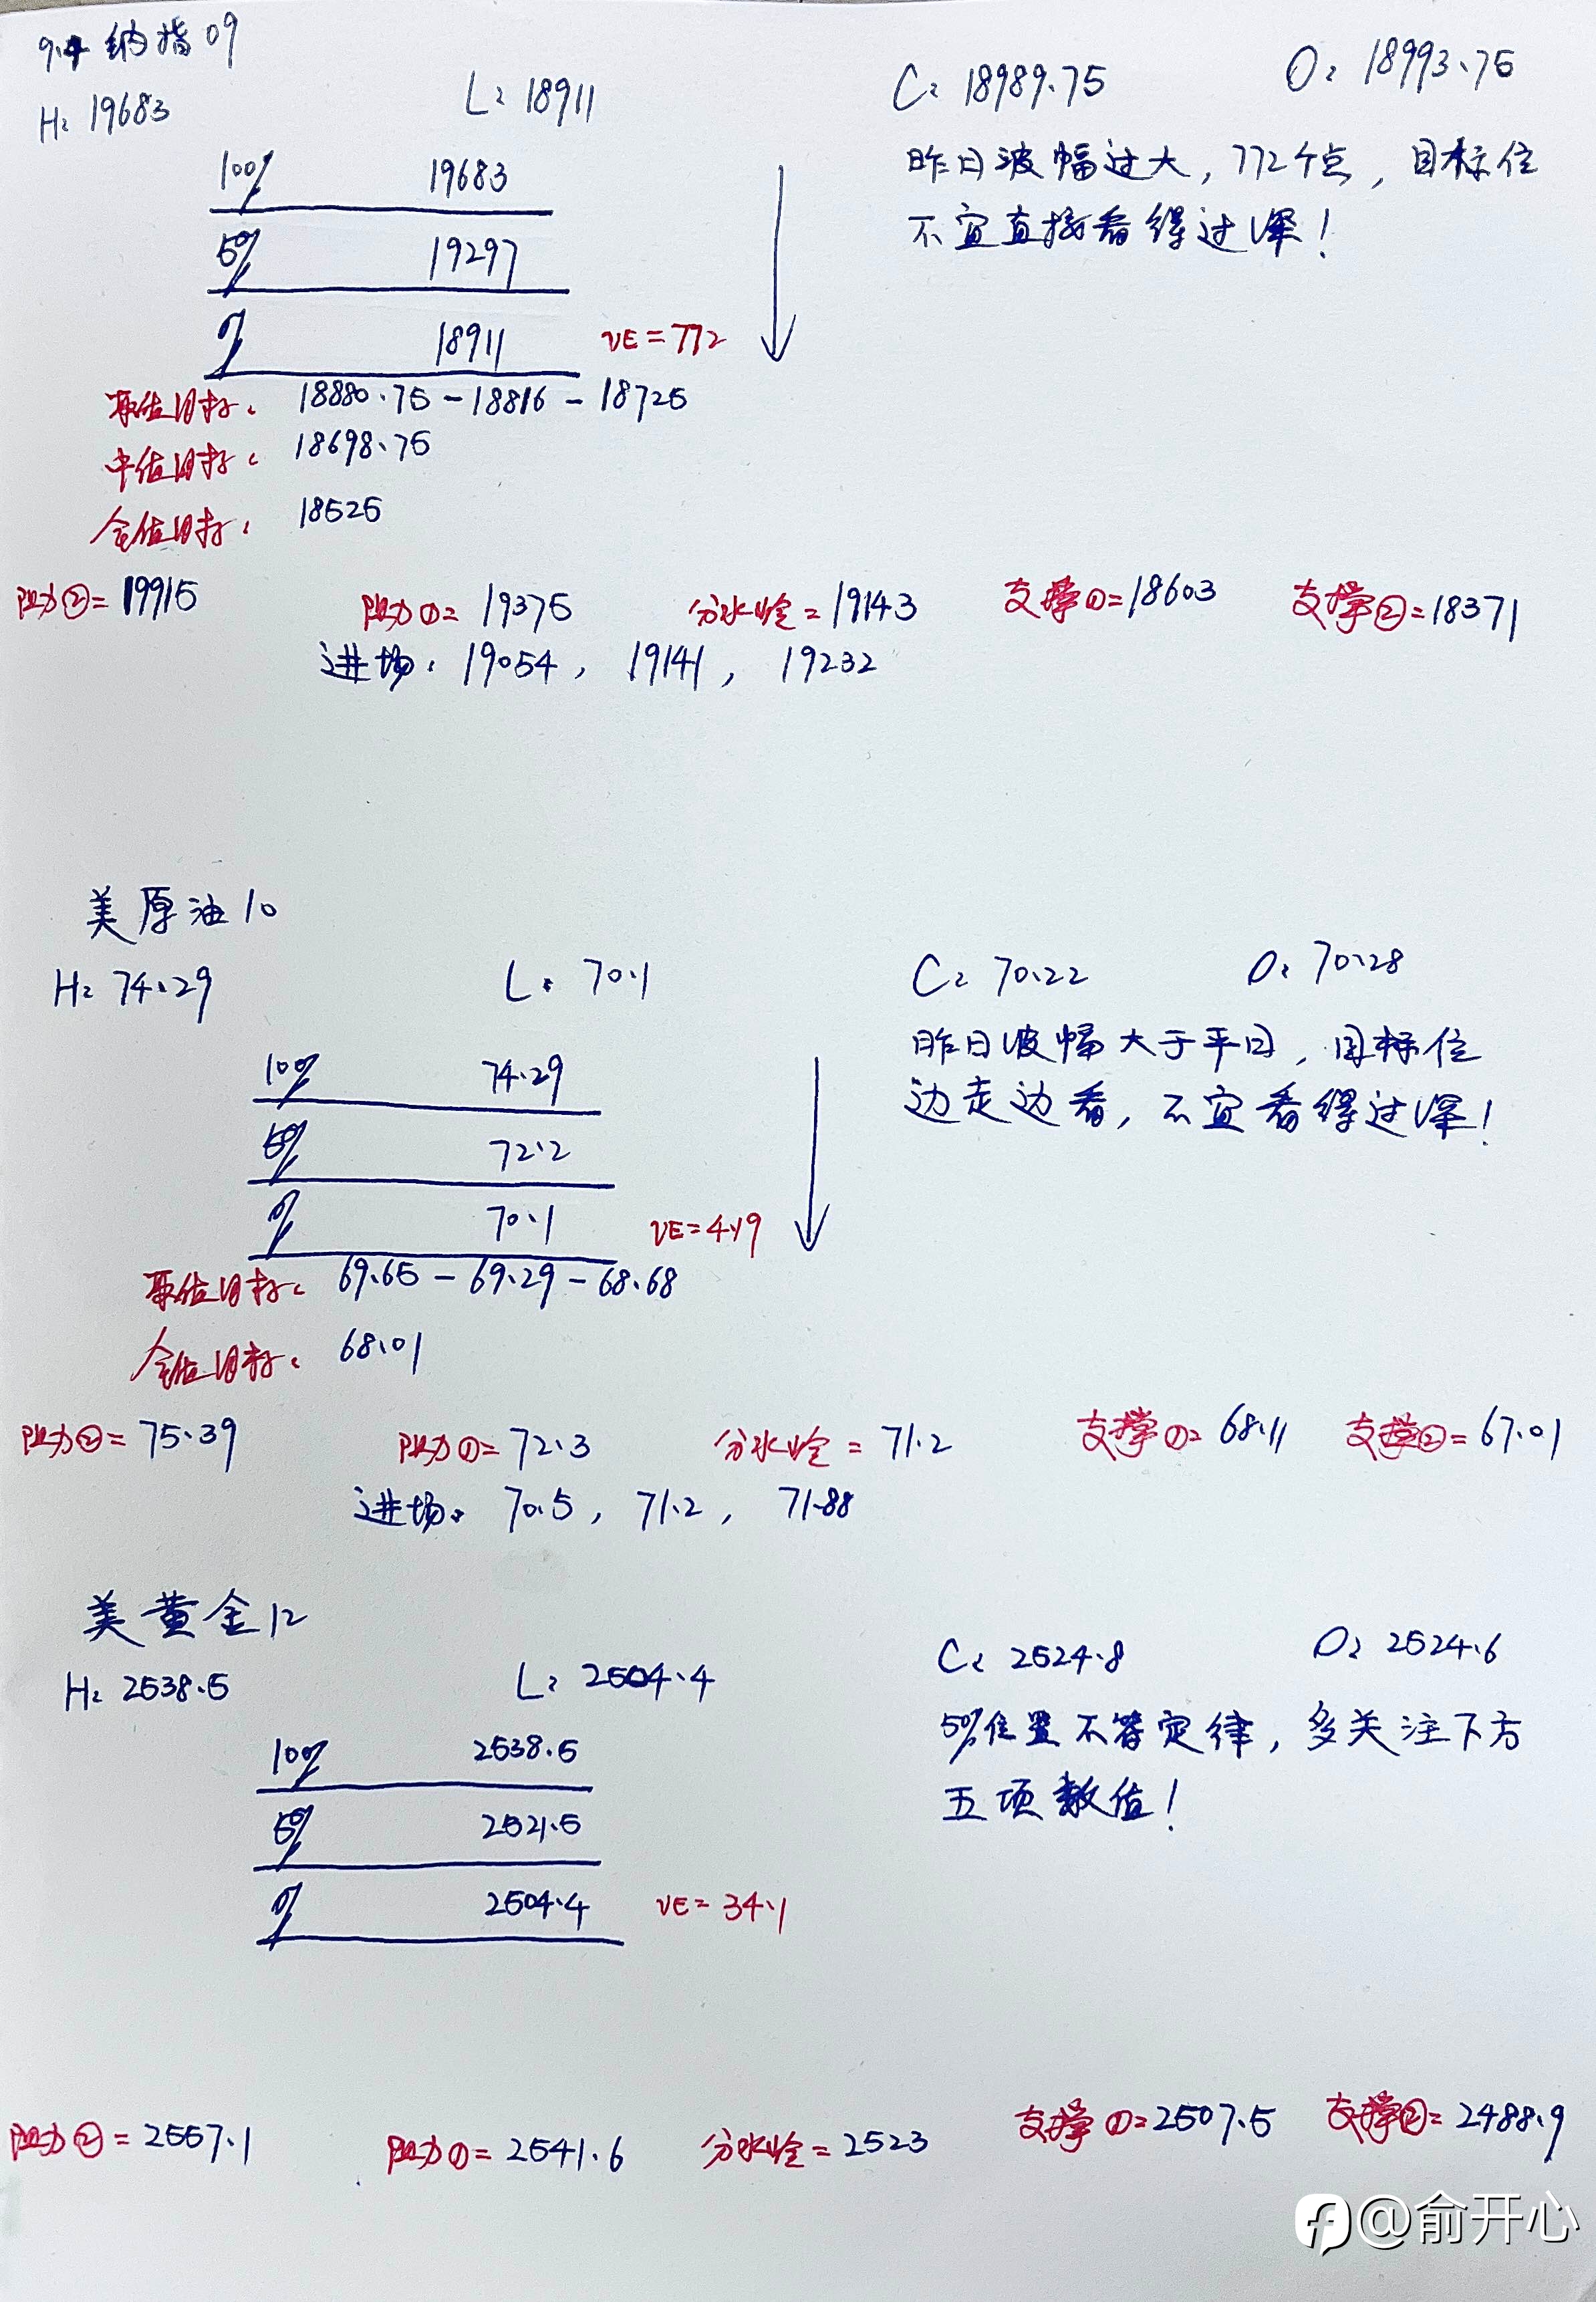 9.4 纳指09
H: 19683 L: 18911 C: 18989.75 O: 18993.75
100% 19683
50% 19297
0% 18911 VE=772
昨日波幅过大，772个点，目标位
不宜直接看得过深！
取值目标: 18880.75-18816-18725
中值目标: 18698.75
全值目标: 18525
阻力②=19915 阻力①=19375 分水岭=19143 支撑①=18603 支撑②=18371
进场: 19054, 19141, 19232
美原油10
H: 74.29 L: 70.1 C: 70.22 O: 70.28
100% 74.29
50% 72.2
0% 70.1 VE=4.19
昨日波幅大于平日，目标位
边走边看，不宜看得过深！
取值目标: 69.65-69.29-68.68
全值目标: 68.01
阻力②=75.39 阻力①=72.3 分水岭=71.2 支撑①=68.11 支撑②=67.01
进场: 70.5, 71.2, 71.88
美黄金12
H: 2538.5 L: 2504.4 C: 2524.8 O: 2524.6
100% 2538.5
50% 2521.5
0% 2504.4 VE=34.1
50%位置不等定律，多关注下方
五项数值！
阻力②=2557.1 阻力①=2541.6 分水岭=2523 支撑①=2507.5 支撑②=2488.9
@俞开心